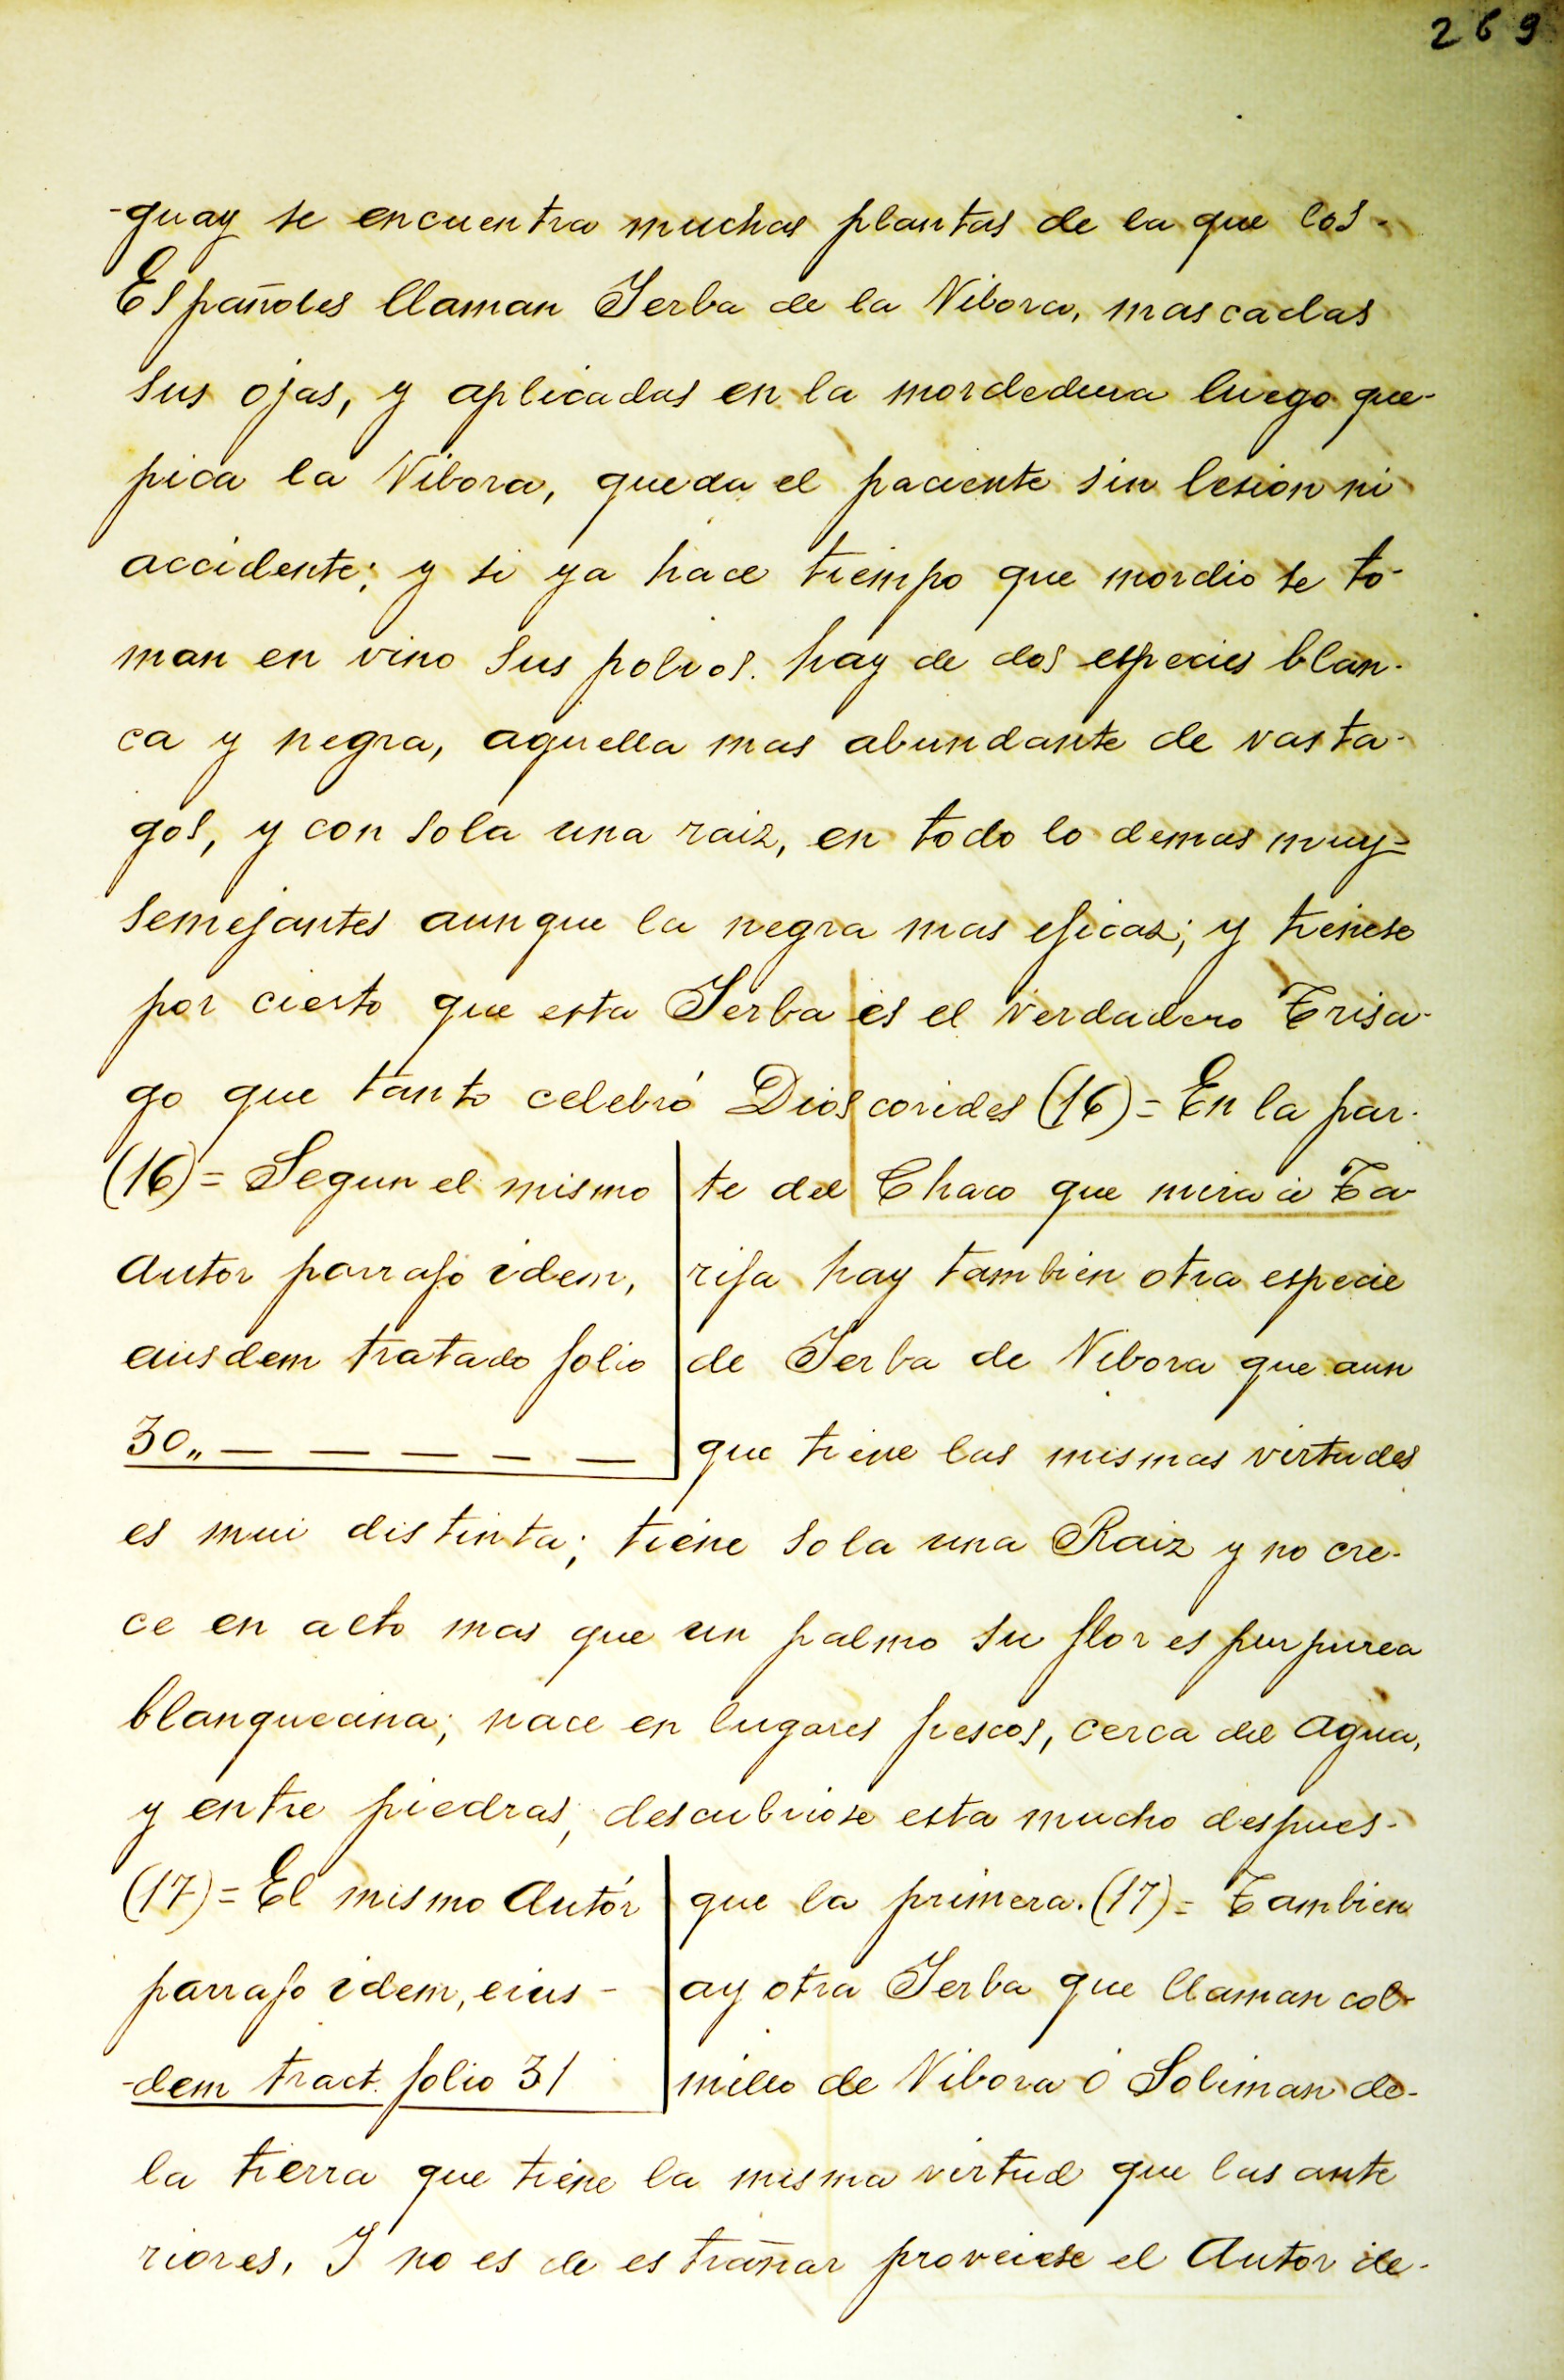 269
-guay se encuentra muchas plantas de la que los-
Españoles llaman Ierba de la Nibora, mascadas
sus ojas, y aplicadas en la mordedura luego que-
pica la Nibora, queda el paciente sin lesion ni
accidente; y si ya hace tiempo que mordio se to-
man en vino sus polvos. hay de dos especies blan-
ca y negra, aquella mas abundante de vasta-
gos, y con sola una raiz, en todo lo demas muy=
semejantes aunque la negra mas eficaz; y tienese
por cierto que esta Ierba es el verdadero Trisa-
go que tanto celebró Dioscorides (16)= En la par-
(16)= Segun el mismo
Autor parrafo idem,
eiusdem tratado folio
30,, — — — — —
te del Chaco que mira á Ta-
rifa hay tambien otra especie
de Ierba de Nibora que aun
que tiene las mismas virtudes
es mui distinta; tiene sola una Raiz y no cre-
ce en alto mas que un palmo su flor es purpurea
blanquecina; nace en lugares frescos, cerca del agua,
y entre piedras, descubriose esta mucho despues-
(17)= El mismo Autór
parrafo idem, eius-
-dem tract. folio 31
que la primera. (17)= Tambien
ay otra Ierba que llaman col-
millo de Nibora ó Soliman de-
la tierra que tiene la misma virtud que las ante
riores, I no es de estrañar proveiese el Autor de-